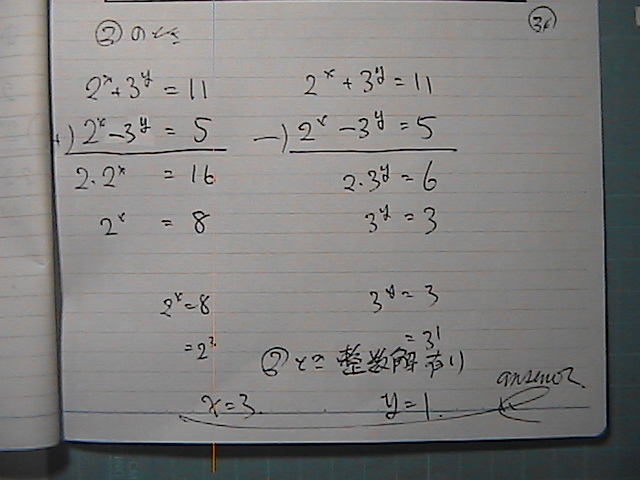 ②のとき
2^x+3^y = 11
+) 2^x-3^y = 5
2・2^x = 16
2^x = 8
2^x=8
=2^3
x=3.
2^x+3^y=11
-) 2^x-3^y=5
2・3^y=6
3^y=3
3^y=3
=3^1
整数解有り
y=1.